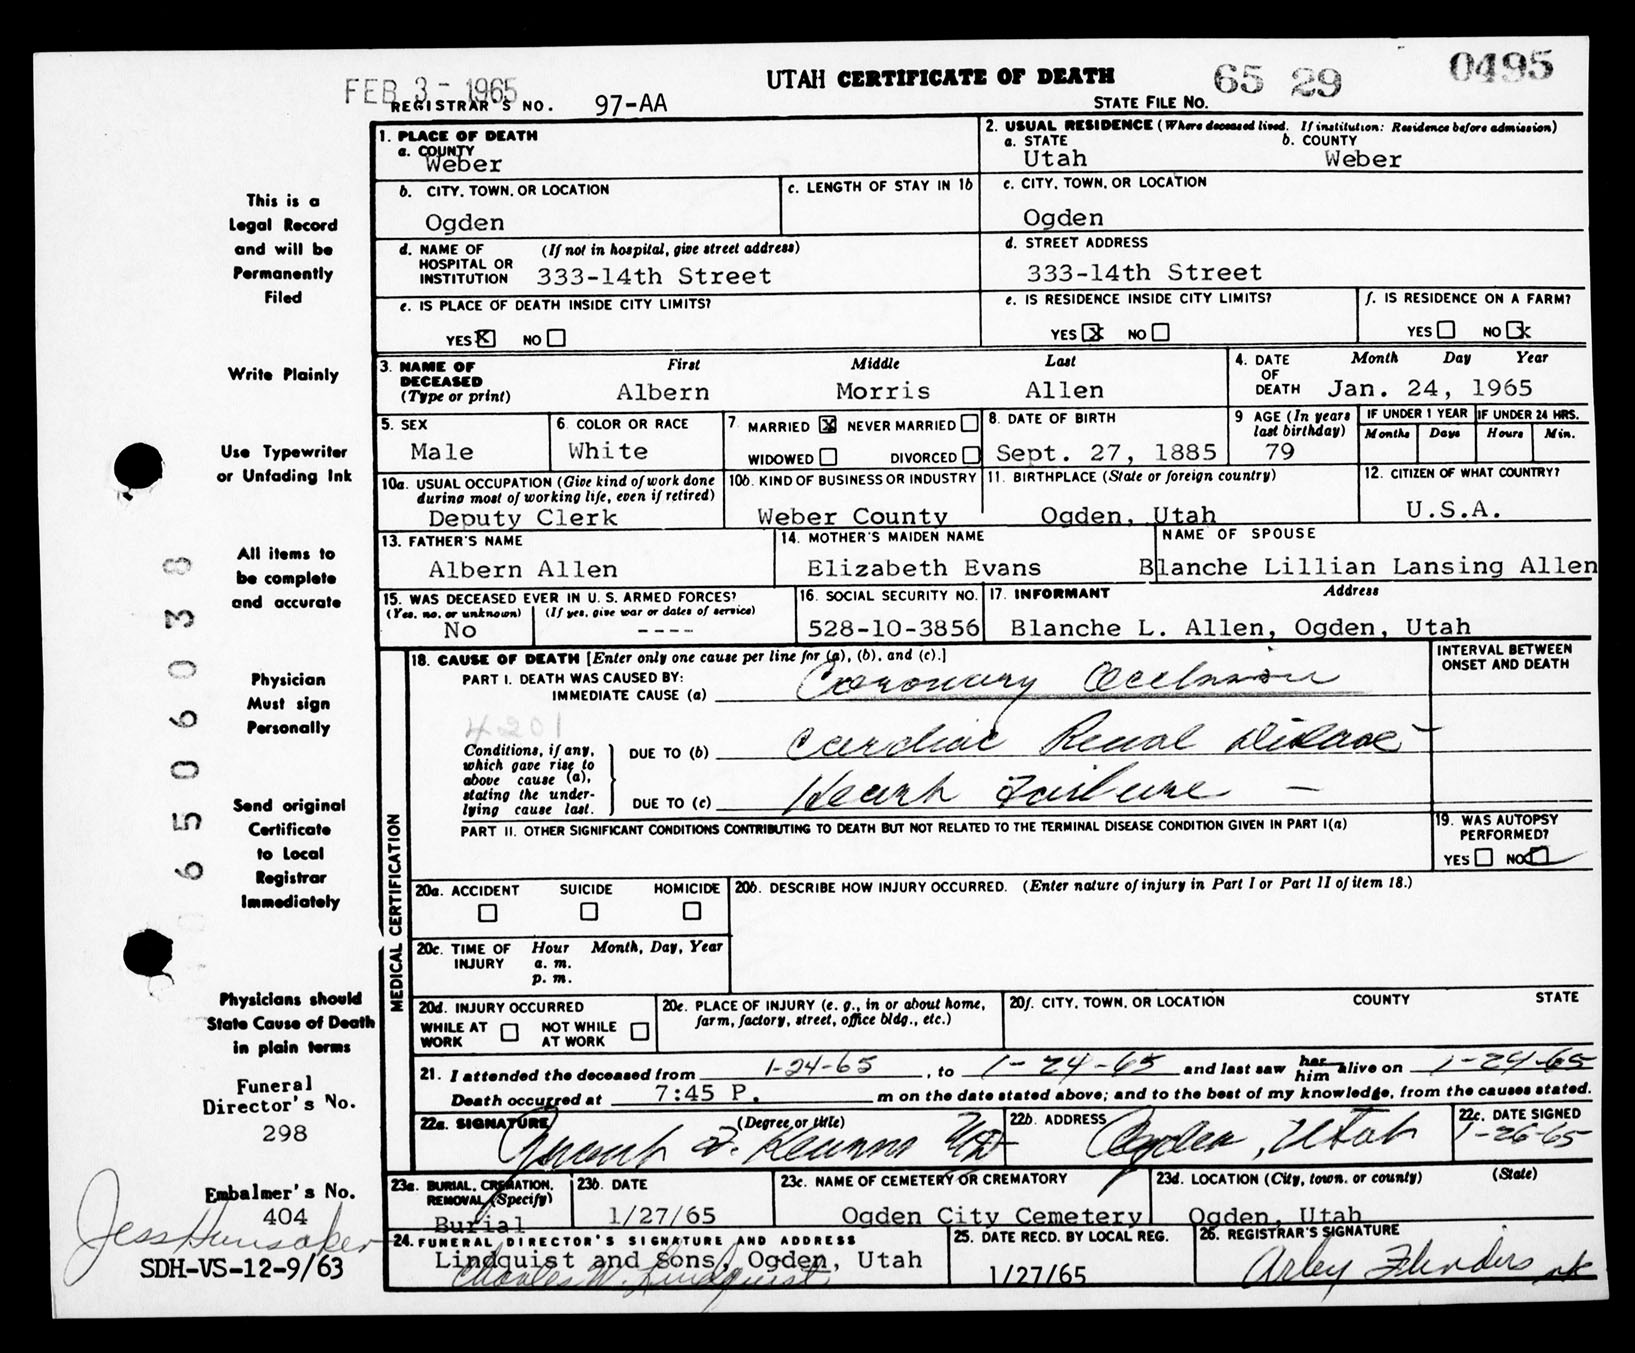 UTAH CERTIFICATE OF DEATH
65 29 0495
FEB 3 - 1965
REGISTRAR'S NO. 97-AA
STATE FILE NO.
This is a
Legal Record
and will be
Permanently
Filed
Write Plainly
Use Typewriter
or Unfading Ink
All items to
be complete
and accurate
Physician
Must sign
Personally
Send original
Certificate
to Local
Registrar
Immediately
Physicians should
State Cause of Death
in plain terms
Funeral
Director's No.
298
Embalmer's No.
404
Jess Hunsaker
SDH-VS-12-9/63
65060038
1. PLACE OF DEATH
a. COUNTY
Weber
2. USUAL RESIDENCE (Where deceased lived. If institution: Residence before admission)
a. STATE b. COUNTY
Utah Weber
b. CITY, TOWN, OR LOCATION
Ogden
c. LENGTH OF STAY IN 1b
c. CITY, TOWN, OR LOCATION
Ogden
d. NAME OF (If not in hospital, give street address)
HOSPITAL OR
INSTITUTION 333-14th Street
d. STREET ADDRESS
333-14th Street
e. IS PLACE OF DEATH INSIDE CITY LIMITS?
YES X NO
e. IS RESIDENCE INSIDE CITY LIMITS?
YES X NO
f. IS RESIDENCE ON A FARM?
YES NO X
3. NAME OF First Middle Last
DECEASED
(Type or print) Albern Morris Allen
4. DATE Month Day Year
OF
DEATH Jan. 24, 1965
5. SEX
Male
6. COLOR OR RACE
White
7. MARRIED X NEVER MARRIED
WIDOWED DIVORCED
8. DATE OF BIRTH
Sept. 27, 1885
9 AGE (In years
last birthday)
79
IF UNDER 1 YEAR IF UNDER 24 HRS.
Months Days Hours Min.
10a. USUAL OCCUPATION (Give kind of work done
during most of working life, even if retired)
Deputy Clerk
10b. KIND OF BUSINESS OR INDUSTRY
Weber County
11. BIRTHPLACE (State or foreign country)
Ogden, Utah
12. CITIZEN OF WHAT COUNTRY?
U.S.A.
13. FATHER'S NAME
Albern Allen
14. MOTHER'S MAIDEN NAME
Elizabeth Evans
NAME OF SPOUSE
Blanche Lillian Lansing Allen
15. WAS DECEASED EVER IN U. S. ARMED FORCES?
(Yes, no, or unknown) (If yes, give war or dates of service)
No ----
16. SOCIAL SECURITY NO.
528-10-3856
17. INFORMANT Address
Blanche L. Allen, Ogden, Utah
MEDICAL CERTIFICATION
18. CAUSE OF DEATH [Enter only one cause per line for (a), (b), and (c).]
INTERVAL BETWEEN
ONSET AND DEATH
PART I. DEATH WAS CAUSED BY:
IMMEDIATE CAUSE (a) Coronary Occlusion
4201
Conditions, if any,
which gave rise to
above cause (a),
stating the under-
lying cause last.
DUE TO (b) Cardiac Renal Disease -
DUE TO (c) Heart Failure -
PART II. OTHER SIGNIFICANT CONDITIONS CONTRIBUTING TO DEATH BUT NOT RELATED TO THE TERMINAL DISEASE CONDITION GIVEN IN PART I(a)
19. WAS AUTOPSY
PERFORMED?
YES NO
20a. ACCIDENT SUICIDE HOMICIDE
20b. DESCRIBE HOW INJURY OCCURRED. (Enter nature of injury in Part I or Part II of item 18.)
20c. TIME OF Hour Month, Day, Year
INJURY a. m.
p. m.
20d. INJURY OCCURRED
WHILE AT WORK NOT WHILE AT WORK
20e. PLACE OF INJURY (e. g., in or about home,
farm, factory, street, office bldg., etc.)
20f. CITY, TOWN, OR LOCATION COUNTY STATE
21. I attended the deceased from 1-24-65, to 1-24-65 and last saw her him alive on 1-24-65
Death occurred at 7:45 P. m on the date stated above; and to the best of my knowledge, from the causes stated.
22a. SIGNATURE (Degree or title)
MD
22b. ADDRESS
Ogden, Utah
22c. DATE SIGNED
1-26-65
23a. BURIAL, CREMATION,
REMOVAL (Specify)
Burial
23b. DATE
1/27/65
23c. NAME OF CEMETERY OR CREMATORY
Ogden City Cemetery
23d. LOCATION (City, town, or county) (State)
Ogden, Utah
24. FUNERAL DIRECTOR'S SIGNATURE AND ADDRESS
Lindquist and Sons, Ogden, Utah
Charles W. Lindquist
25. DATE RECD. BY LOCAL REG.
1/27/65
26. REGISTRAR'S SIGNATURE
Arley Flinders